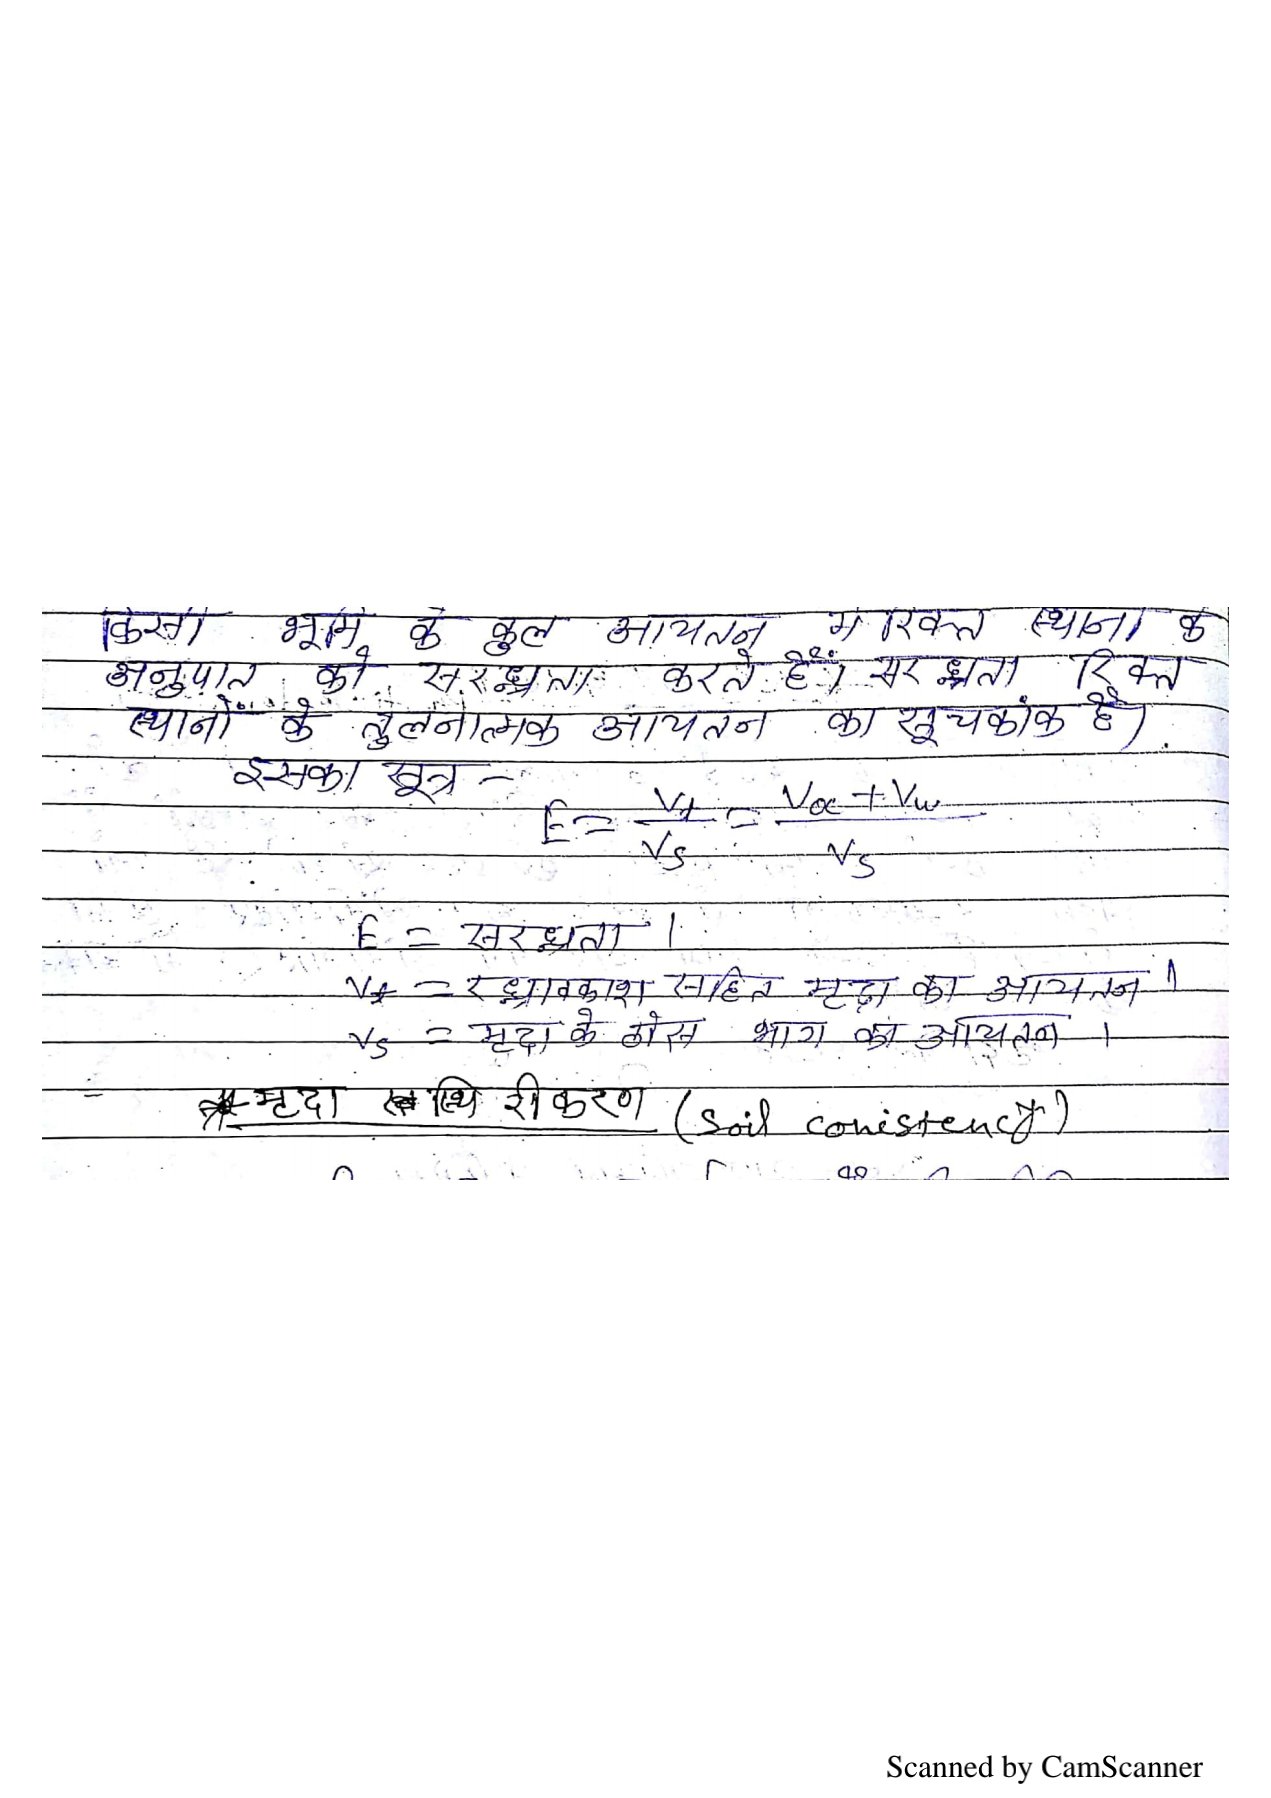 किसी भूमि के कुल आयतन में रिक्त स्थानों के
अनुपात को सरंध्रता करते हैं। सरंध्रता रिक्त
स्थानों के तुलनात्मक आयतन का सूचकांक है।
इसका सूत्र -
E = Vf/Vs = (Va + Vw)/Vs
E = सरंध्रता।
Vf = रंध्रावकाश सहित मृदा का आयतन।
Vs = मृदा के ठोस भाग का आयतन।
* मृदा स्थिरीकरण (soil conistency)
Scanned by CamScanner